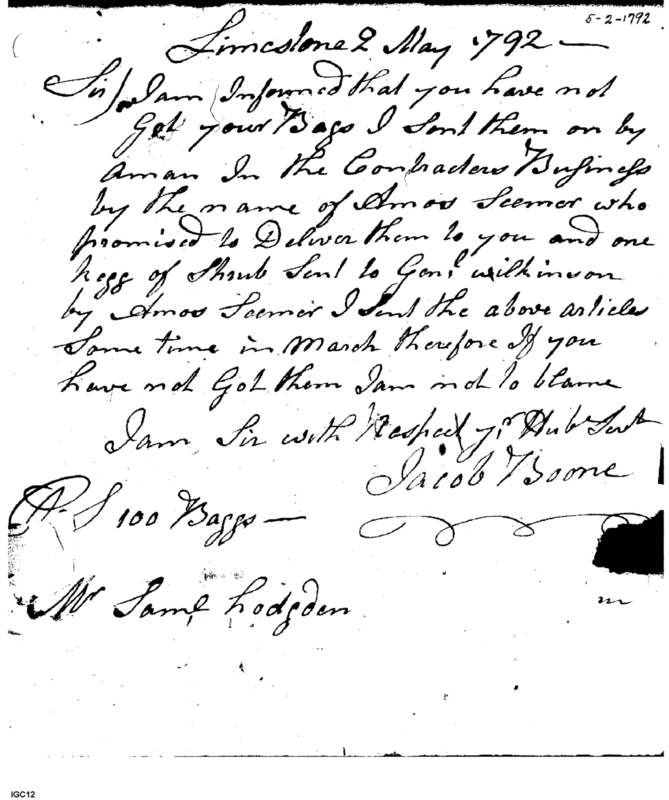 5-2-1792
Limestone 2 May 1792 —
Sir / I am Informed that you have not
Got your Bags I Sent them on by
aman In the Contracters Business
by the name of Amos Seemer who
promised to Deliver them to you and one
kegg of Shrub Sent to Genl wilkinson
by Amos Seemer I Sent the above articles
Some time in March therefore If you
have not Got them I am not to blame
I am Sir with Respect yr Hube Servt
Jacob Boone
P. S 100 Baggs —
Mr Saml Hodgden
IGC12